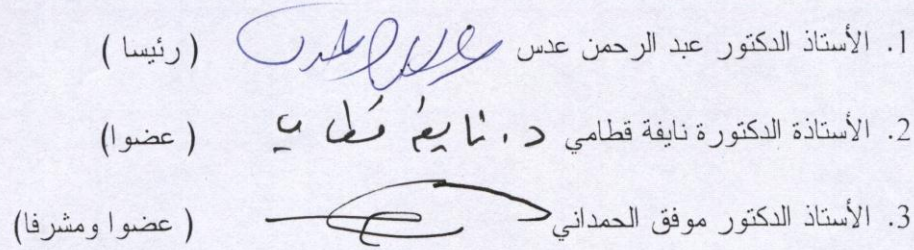 1. الأستاذ الدكتور عبد الرحمن عدس ( رئيسا )
2. الأستاذة الدكتورة نايفة قطامي د. نايفة قطامي ( عضوا)
3. الأستاذ الدكتور موفق الحمداني ( عضوا ومشرفا)